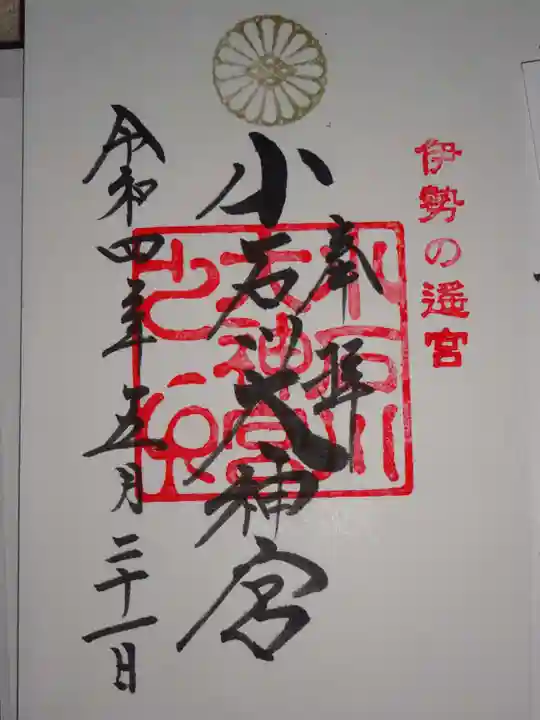 伊勢の遥宮
奉拝
小石川大神宮
小石川
大神宮
之印
令和四年五月二十一日